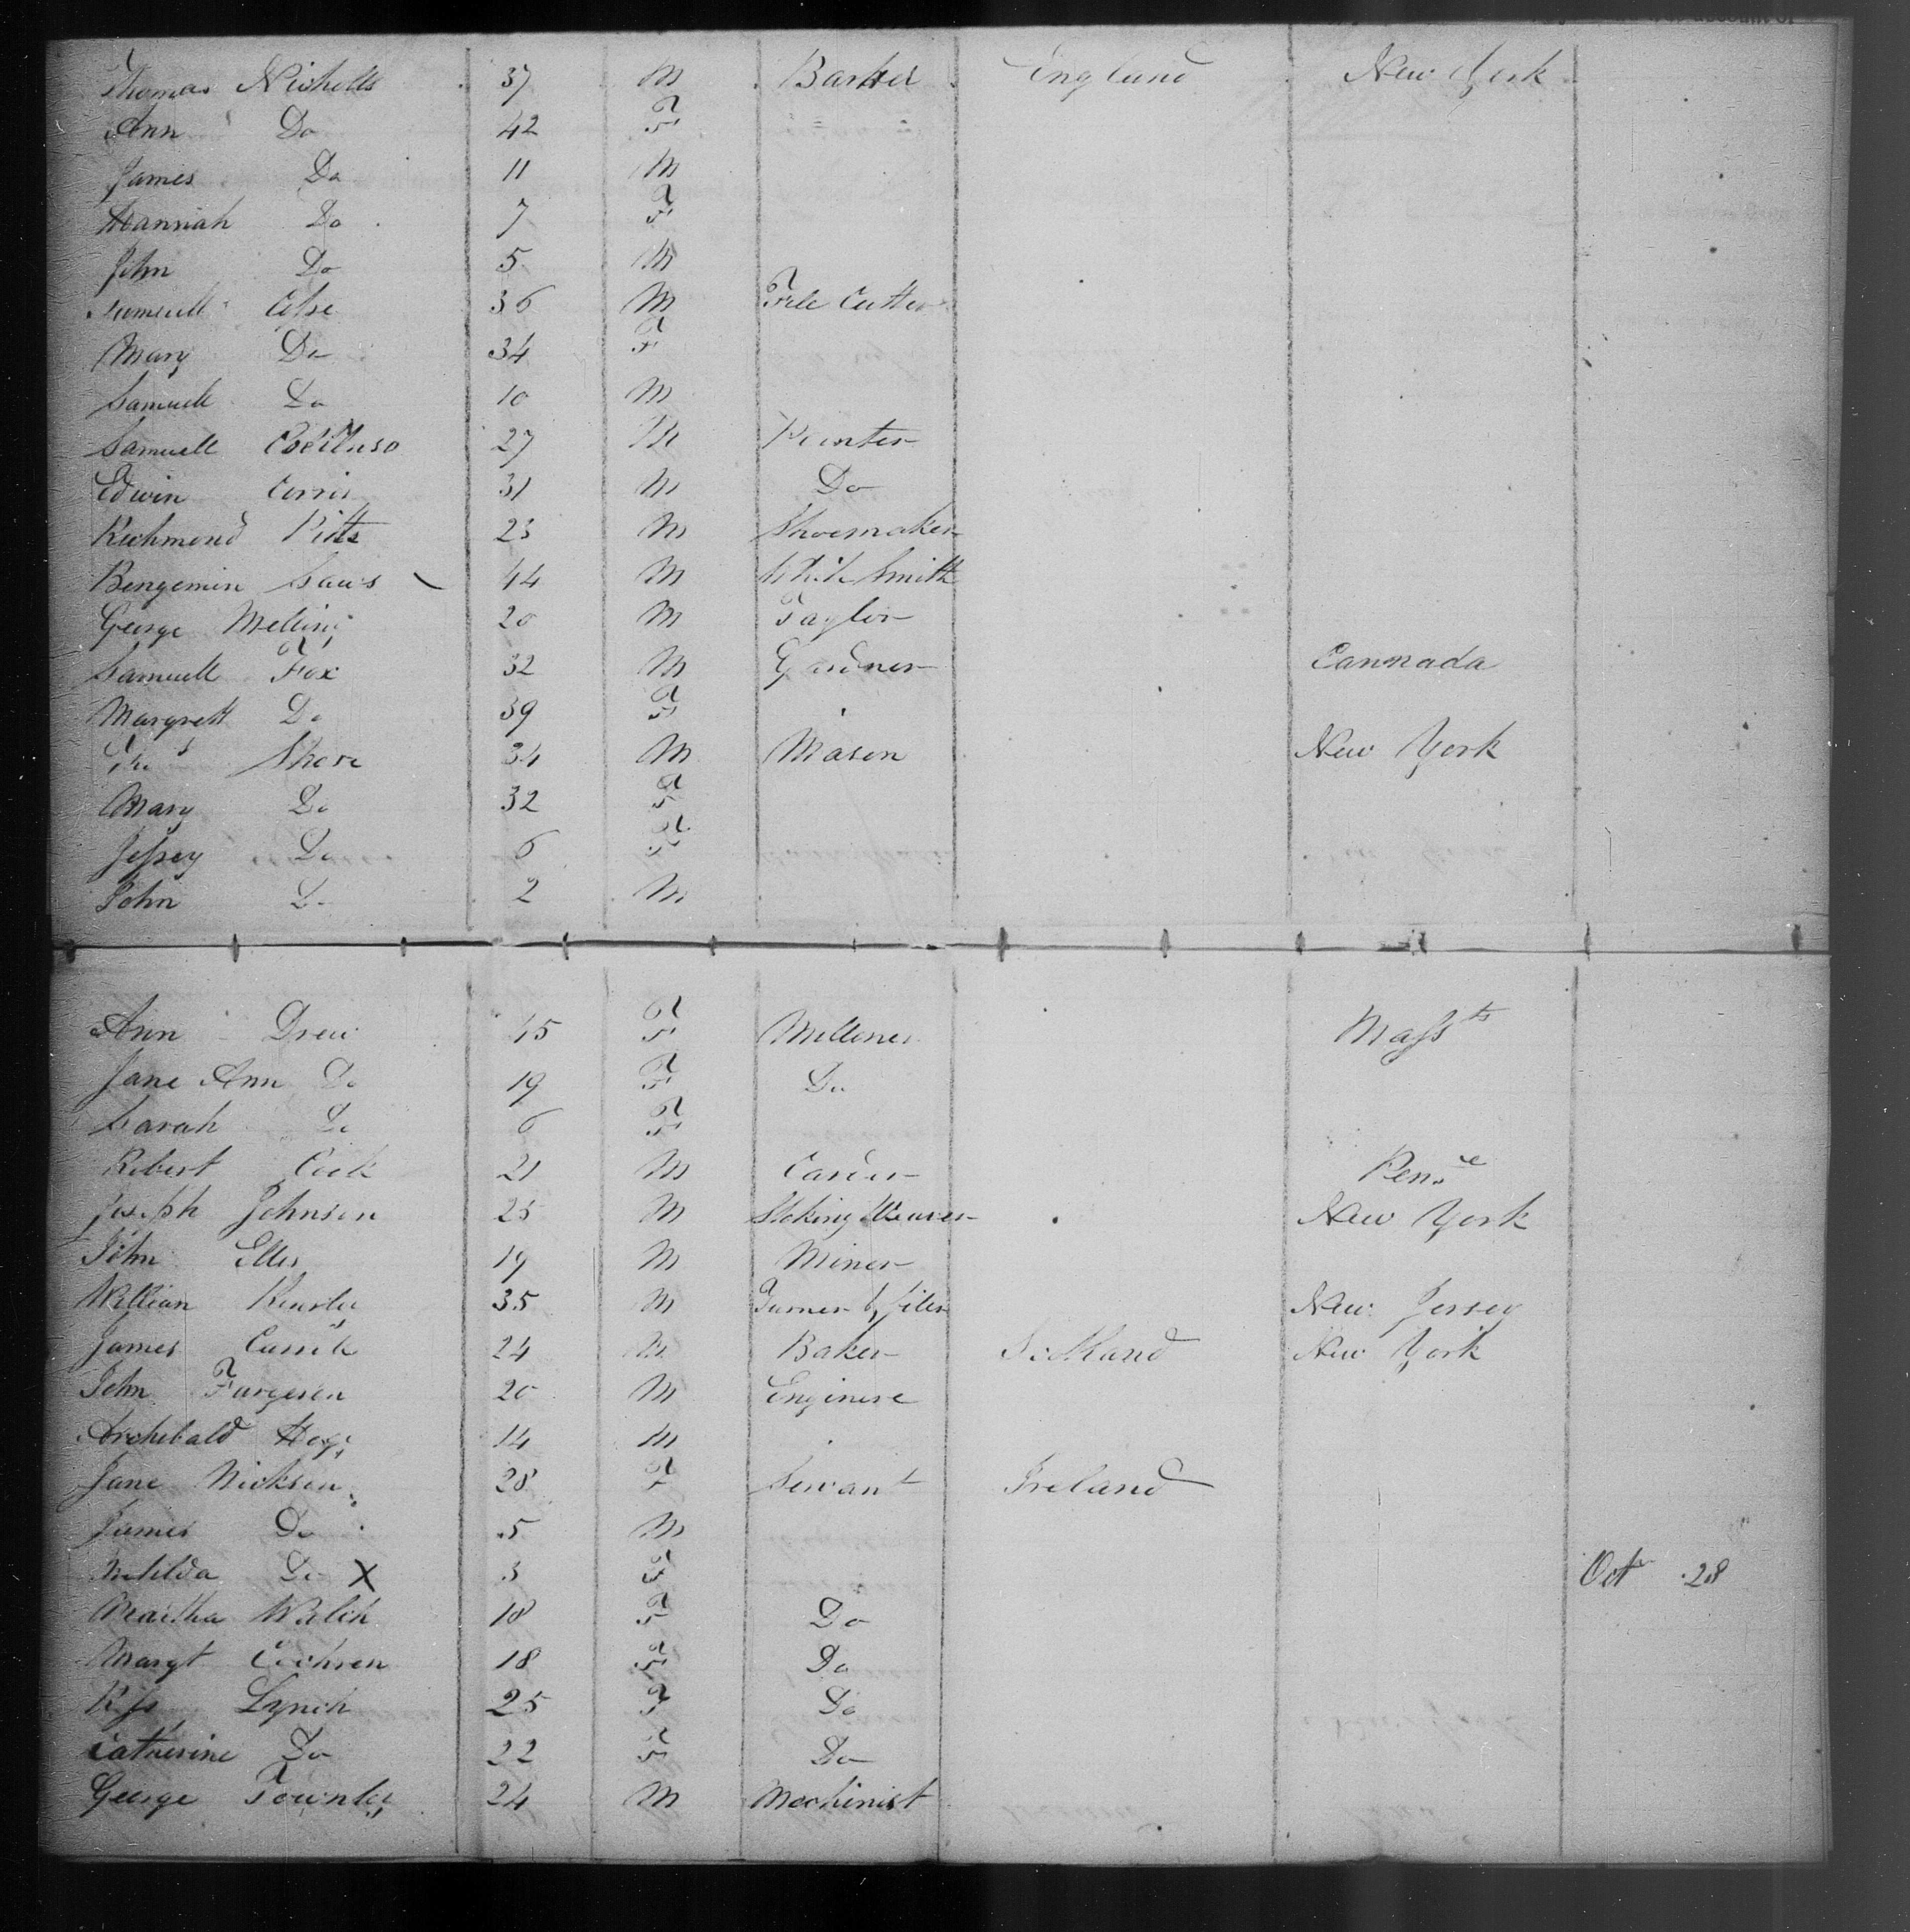 Thomas Nicholls 37 M England New York
Ann Do 42 F
James Do 11 M
Hannah Do 7 F
John Do 5 M
Samuell 36 M File Cutter
Mary Do 34 F
Samuell Do 10 M
Samuell 27 M
Edwin 31 M Do
Richmond Pitts 23 M Shoemaker
Bengemin 44 M White Smith
George Melling 20 M Taylor
Samuell Fox 32 M Gardner Cannada
Margrett Do 39 F
Thos Shore 34 M Mason New York
Mary Do 32 F
Jessey Do 6 F
John Do 2 M
Ann Drew 45 F Millener Massts
Jane Ann Do 19 F Do
Sarah Do 6 F
Robert Cook 21 M Carder
Joseph Johnson 25 M Stoking Weaver New York
John Elles 19 M Miner
William 35 M Turner & filer New Jersey
James 24 M Baker Scotland New York
John Furgeson 20 M Enginere
Archibald Hogg 14 M
Jane Nickson 28 F Servant Ireland
James Do 5 M
Matilda Do X 3 F Oct 28
Martha Walch 18 F Do
Margt Cochren 18 F Do
Lynch 25 F Do
Catherine Do 22 F Do
George Townley 24 M Mechinist